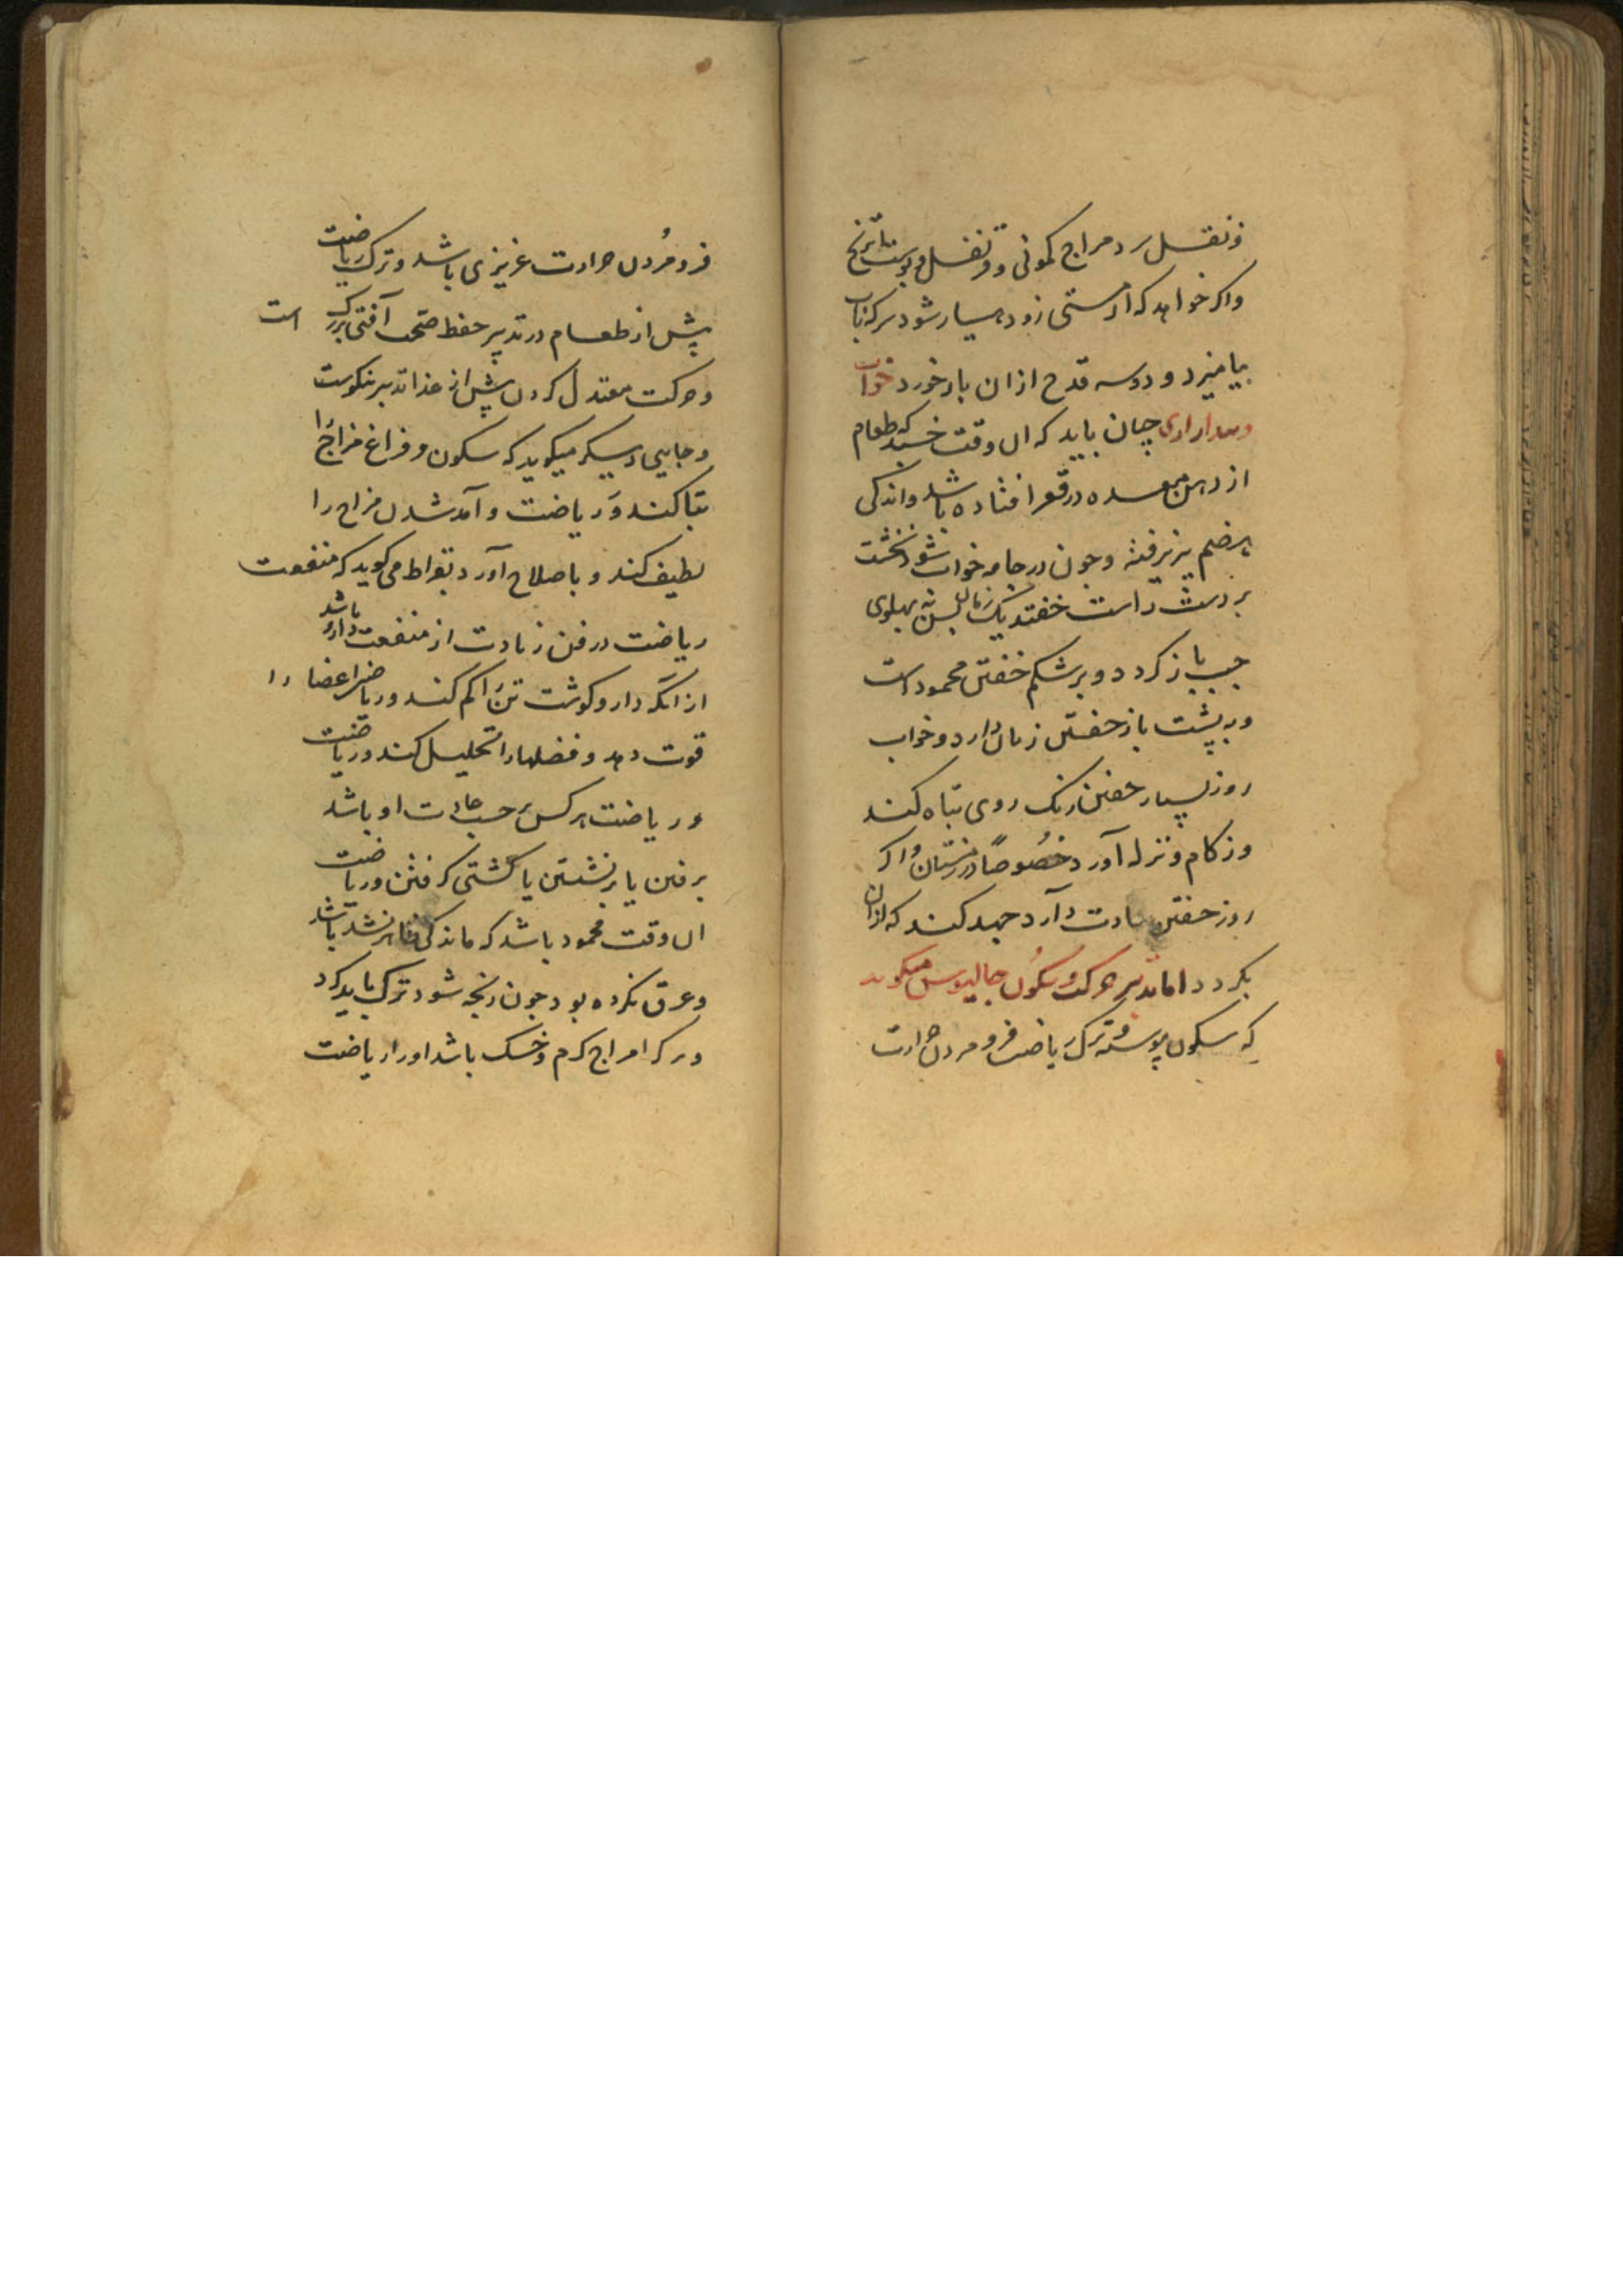 و نقل سرد مزاج کمونی و قرنفل و پوست ترنج
واکر خواهد که از مستی زود هسیار شود سرکه باب
بیامیزد و دو سه قدح ازان باز خورد خواب
وبیداری چنان باید که ان وقت خسبد که طعام
از دهن معده در قعر افتاده باشد واندکی
هضم پذیرفته وجون در جامه خواب شود نخست
بر دست راست خفتد یک زمان بس به پهلوی
چپ باز کردد و بر شکم خفتن محمود است
وبر پشت باز خفتن زیان دارد و خواب
روز بسیار خفتن رنک روی تباه کند
وزکام و نزله آورد خصُوصًا در زمستان واکر
روز خفتن عادت دارد جهد کند که ازان
بکردد اما تدبیر حرکت وسکُون جالینوس میکوید
که سکون پیوسته وترک ریاضت فرو مردن حرارت
فرو مُردن حرارت غریزی باشد و ترک ریاضت
پیش از طعام در تدبیر حفظ صحت آفتی بزرک است
وحرکت معتدل کردن پیش از غذا تدبیر نیکوست
و جایی دیکر میکوید که سکون و فراغ مزاج را
تباکند وَریاضت وآمد شدن مزاج را
لطیف کند و باصلاح آورد بقراط می کوید که منفعت
ریاضت در فن زیادت از منفعت دارو باشد
از انکه دارو کوشت تن را کم کند وریاضت اعضا را
قوت دهد و فضلها را تحلیل کند وریاضت
وریاضت هر کس بر حسب عادت او باشد
برفتن یا برنشستن یا کشتی کرفتن وریاضت
ان وقت محمود باشد که ماندکی ظاهر نشده باشد
وعرق نکرده بود جون رنجه شود ترک باید کرد
وهرکرا مزاج کرم وخشک باشد اورا ریاضت